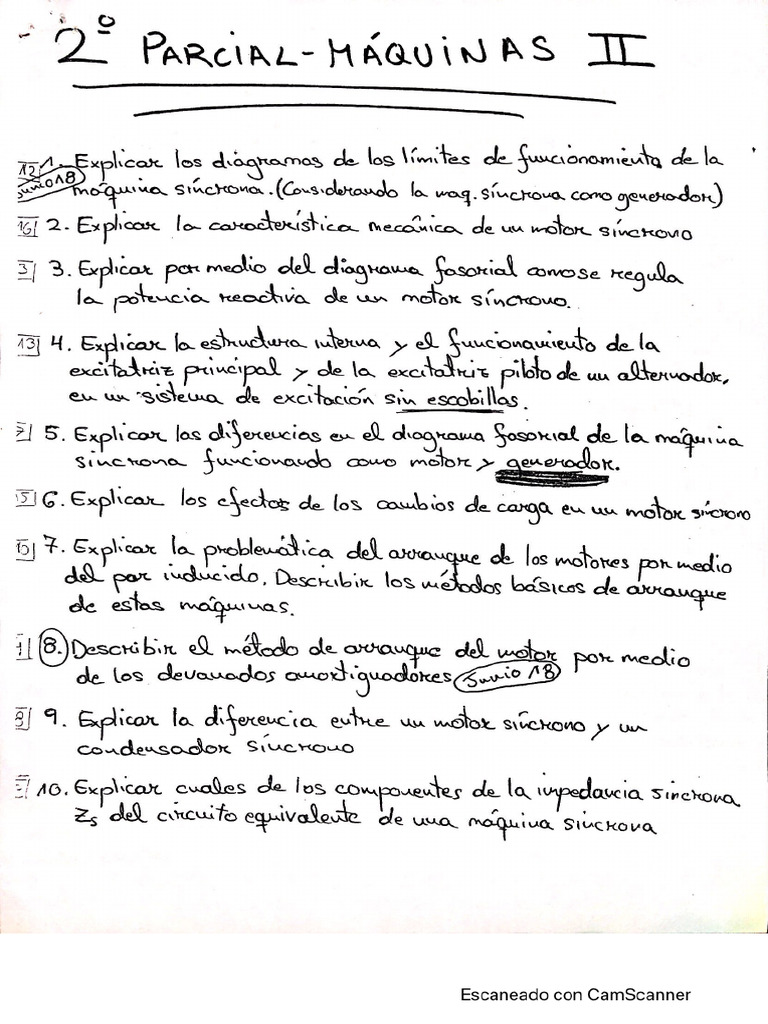 2º PARCIAL-MÁQUINAS II
12 1. Explicar los diagramas de los límites de funcionamiento de la
Junio 18 máquina síncrona. (Considerando la maq. síncrona como generador)
16 2. Explicar la característica mecánica de un motor síncrono
3 3. Explicar por medio del diagrama fasorial como se regula
la potencia reactiva de un motor síncrono.
13 4. Explicar la estructura interna y el funcionamiento de la
excitatriz principal y de la excitatriz piloto de un alternador,
en un sistema de excitación sin escobillas.
5. Explicar las diferencias en el diagrama fasorial de la máquina
síncrona funcionando como motor y generador.
6. Explicar los efectos de los cambios de carga en un motor síncrono
7. Explicar la problemática del arranque de los motores por medio
del par inducido. Describir los métodos básicos de arranque
de estas máquinas.
8. Describir el método de arranque del motor por medio
de los devanados amortiguadores Junio 18
9. Explicar la diferencia entre un motor síncrono y un
condensador síncrono
10. Explicar cuales de los componentes de la impedancia síncrona
Zs del circuito equivalente de una máquina síncrona
Escaneado con CamScanner